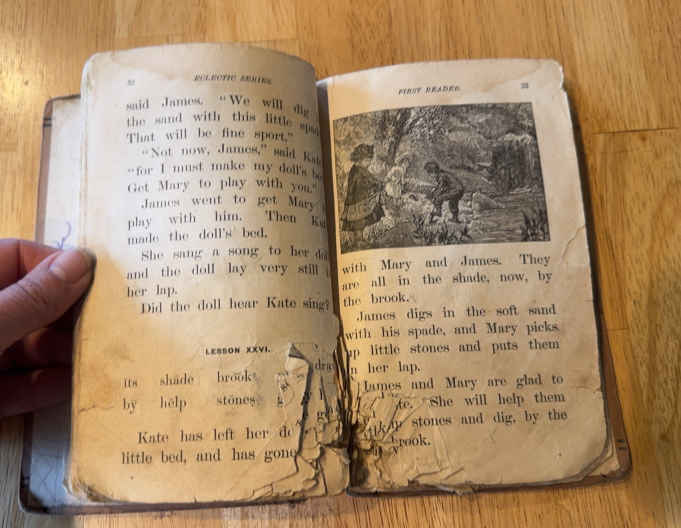 32 ECLECTIC SERIES.
said James. "We will dig
the sand with this little
That will be fine sport."
"Not now, James," said Kate
"for I must make my doll's
Get Mary to play with you."
James went to get Mary
play with him. Then
made the doll's bed.
She sang a song to her
and the doll lay very still
her lap.
Did the doll hear Kate sing?
LESSON XXVI.
its shade brook
by help stones
Kate has left her
little bed, and has gone
FIRST READER. 33
with Mary and James. They
are all in the shade, now, by
the brook.
James digs in the soft sand
with his spade, and Mary picks
up little stones and puts them
in her lap.
James and Mary are glad to
She will help them
stones and dig, by the
brook.